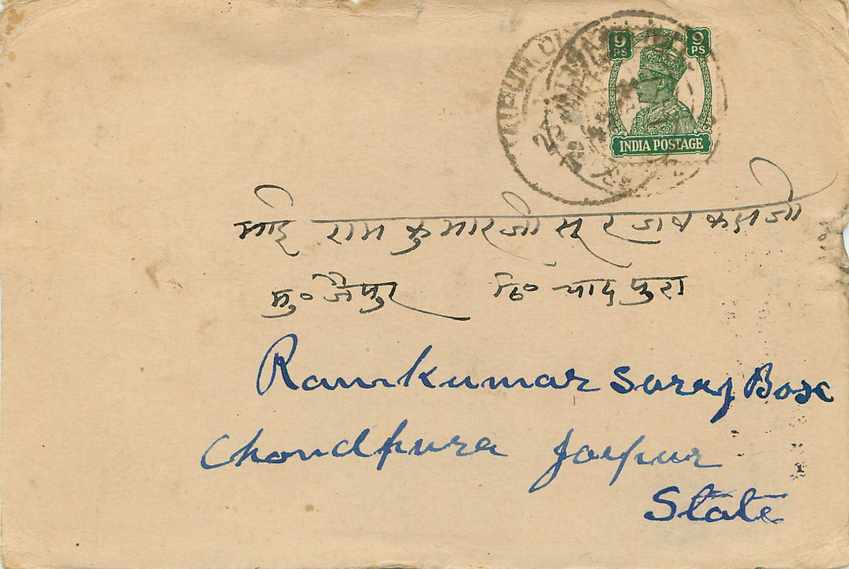 9 PS 9 PS
INDIA POSTAGE
JAIPUR
भाई राम कुमारजी सूरजबक्सजी
मु० जैपुर ठि० चादपुरा
Ramkumar Suraj Box
Chandpura Jaipur
State